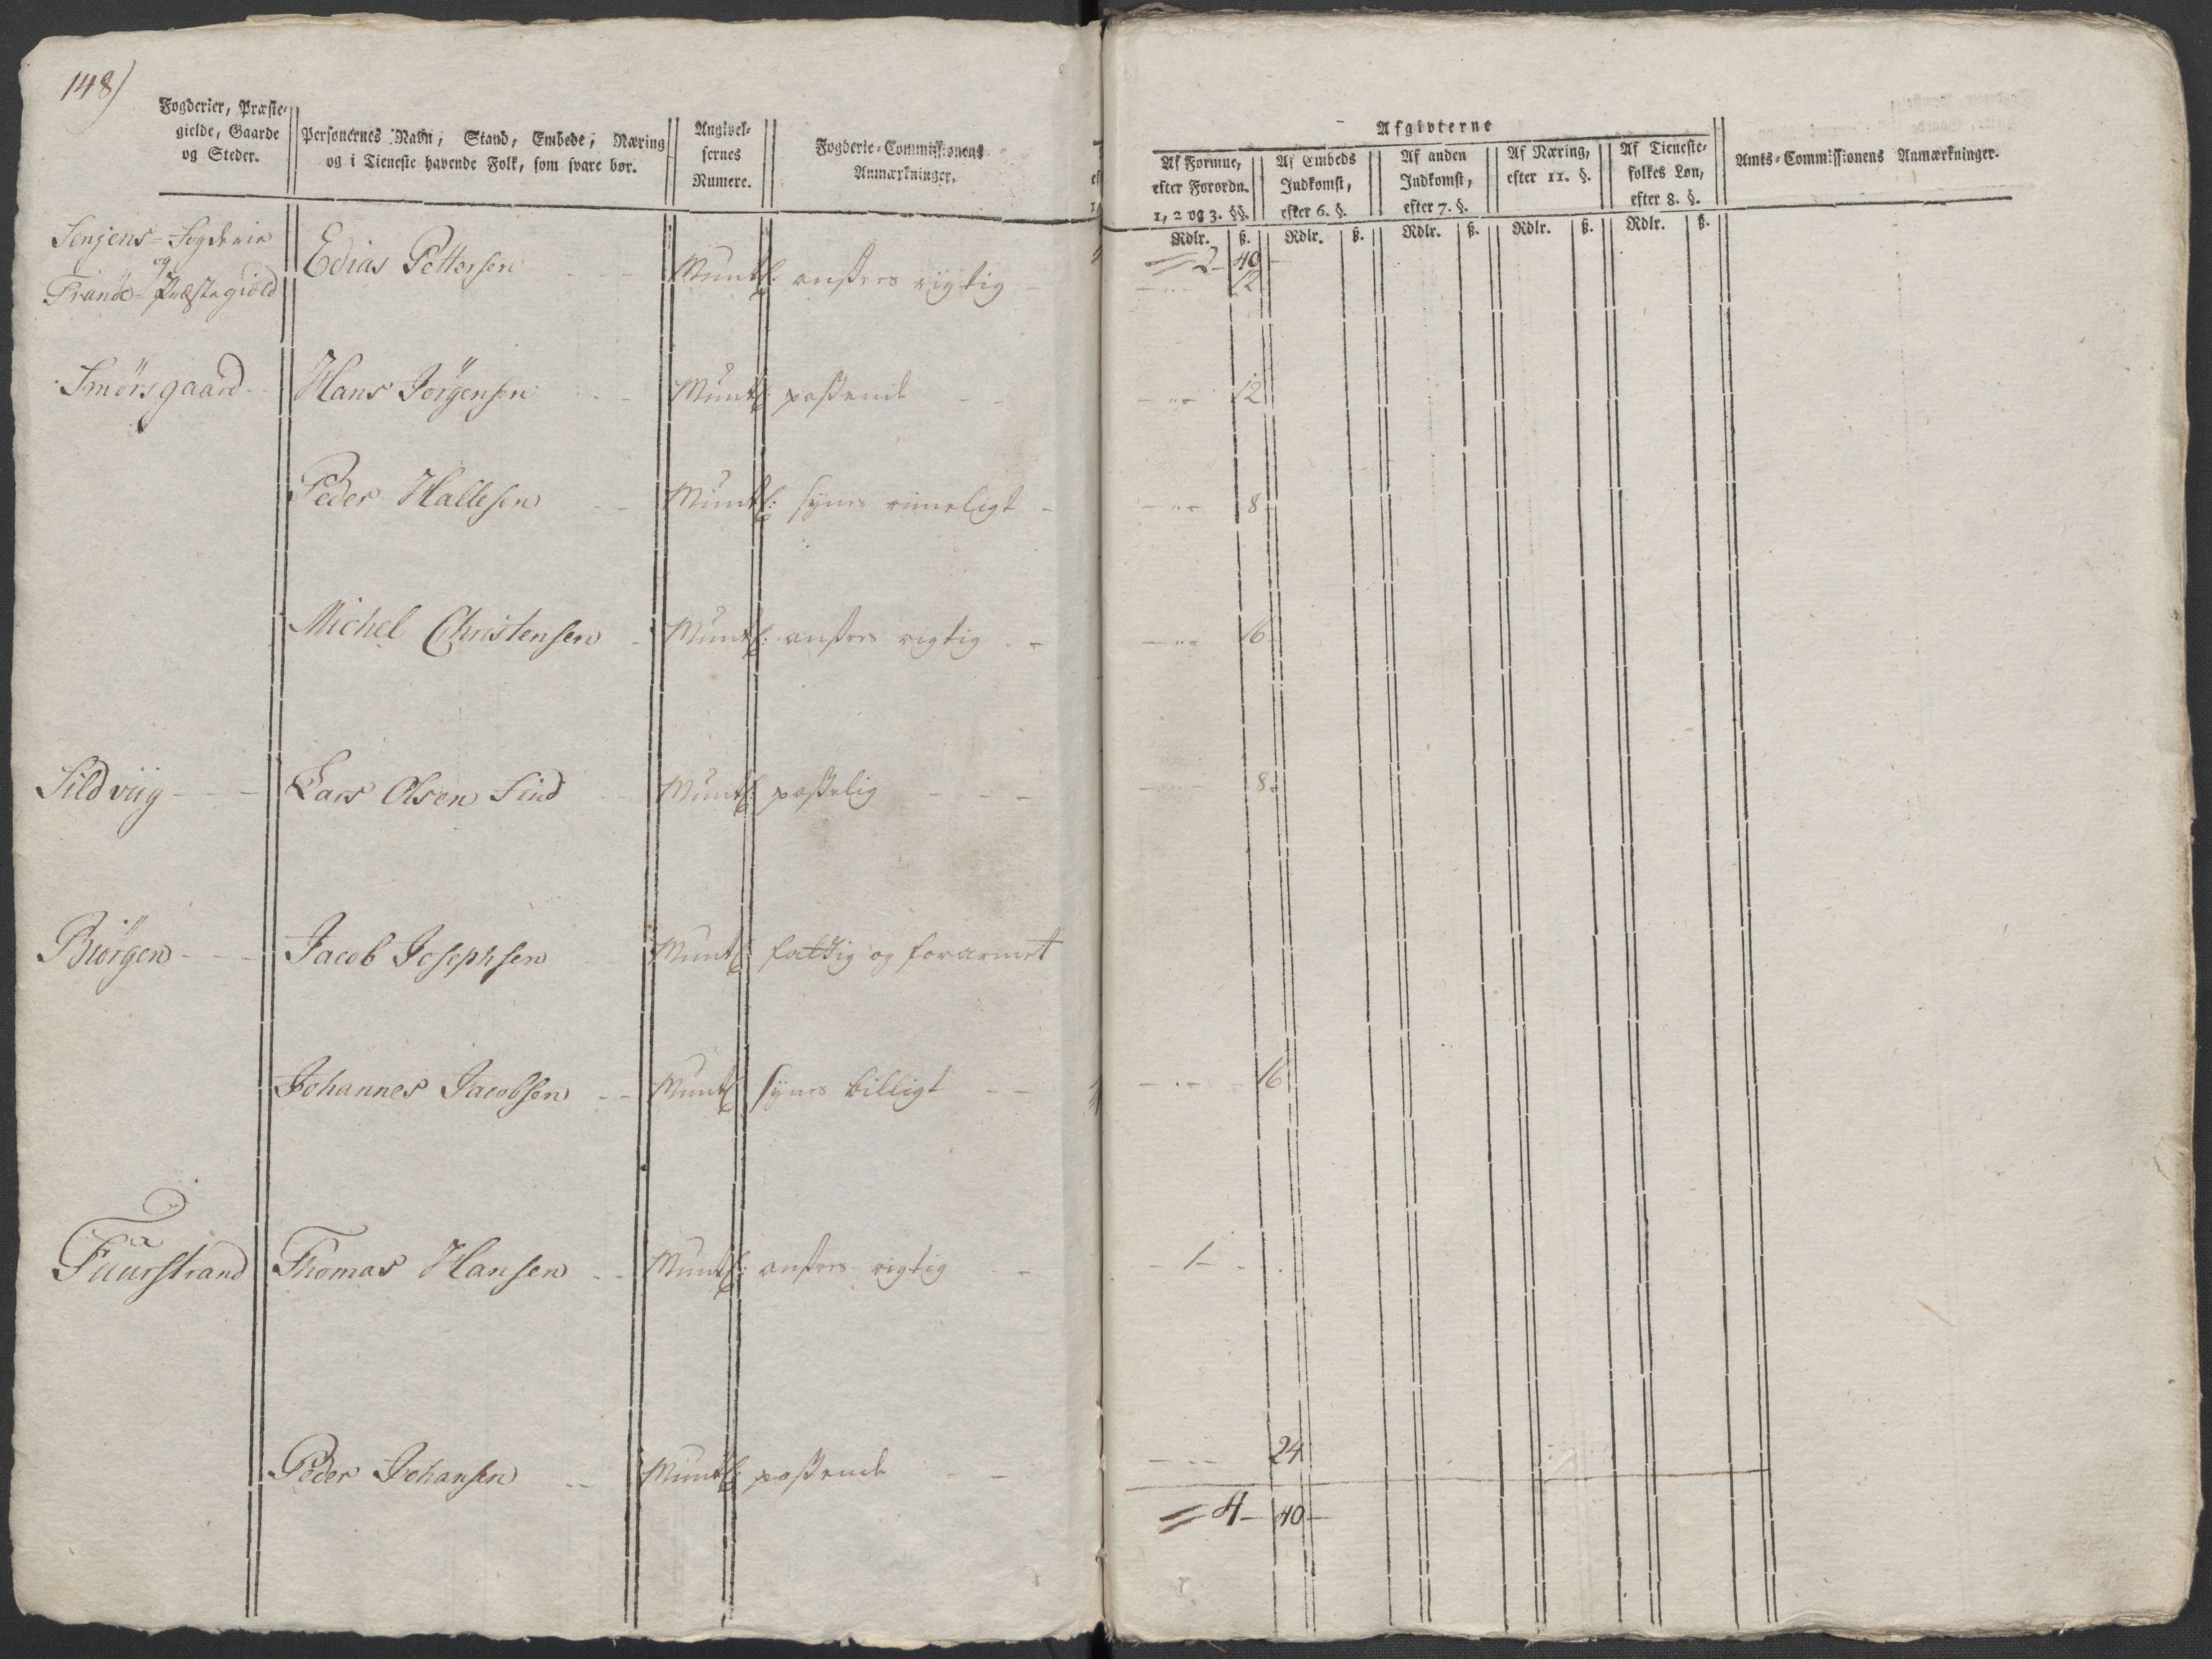 148)
Fogderier, Præste-
gielde, Gaarde
og Steder.
Personernes Navn, Stand, Embede, Næring
og i Tieneste havende Folk, som svare bør.
Angivel-
sernes
Numere.
Fogderie-Commissionens
Anmærkninger.
Afgivterne
Af Formue,
efter Forordn.
1, 2 og 3. §§.
Af Embeds
Indkomst,
efter 6. §.
Af anden
Indkomst,
efter 7. §.
Af Næring,
efter 11. §.
Af Tieneste-
folkes Løn,
efter 8. §.
Amts-Commissionens Anmærkninger.
Rdlr. ß. Rdlr. ß. Rdlr. ß. Rdlr. ß. Rdlr. ß.
2 - 40 -
Senjens-Fogderie
og
Tranöe-Præstegield
Edias Pettersen - - Muntl: ansees rigtig - - " - 12
Smörsgaard - Hans Jörgensen - - Muntl: passende - - - " - 12
Peder Hallesen - - Muntl: synes rimeligt - - " - 8
Michel Christensen - Muntl: ansees rigtig - - - " - 16
Sildviig - - - Lars Olsen Lind - Muntl: passelig - - - - " - 8
Biörgen - - - Jacob Josephsen Muntl: fattig og forarmet
Johannes Jacobsen - - Muntl: synes billigt - - - " - 16
Fuurstrand Thomas Hansen - - Muntl: ansees rigtig - - 1 -
Peder Johansen - - Muntl: passende - - - " - 24
4 - 40 -